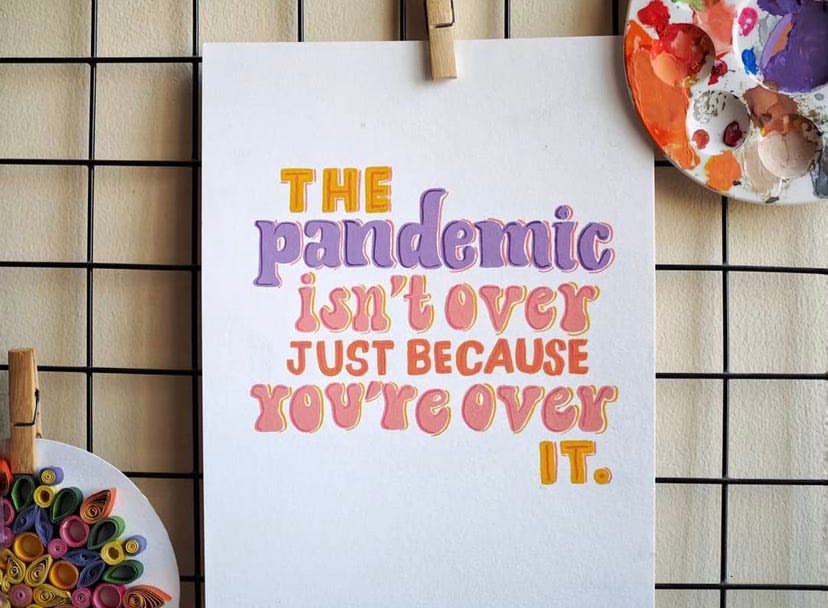 THE
pandemic
isn't over
JUST BECAUSE
YOU're over
IT.